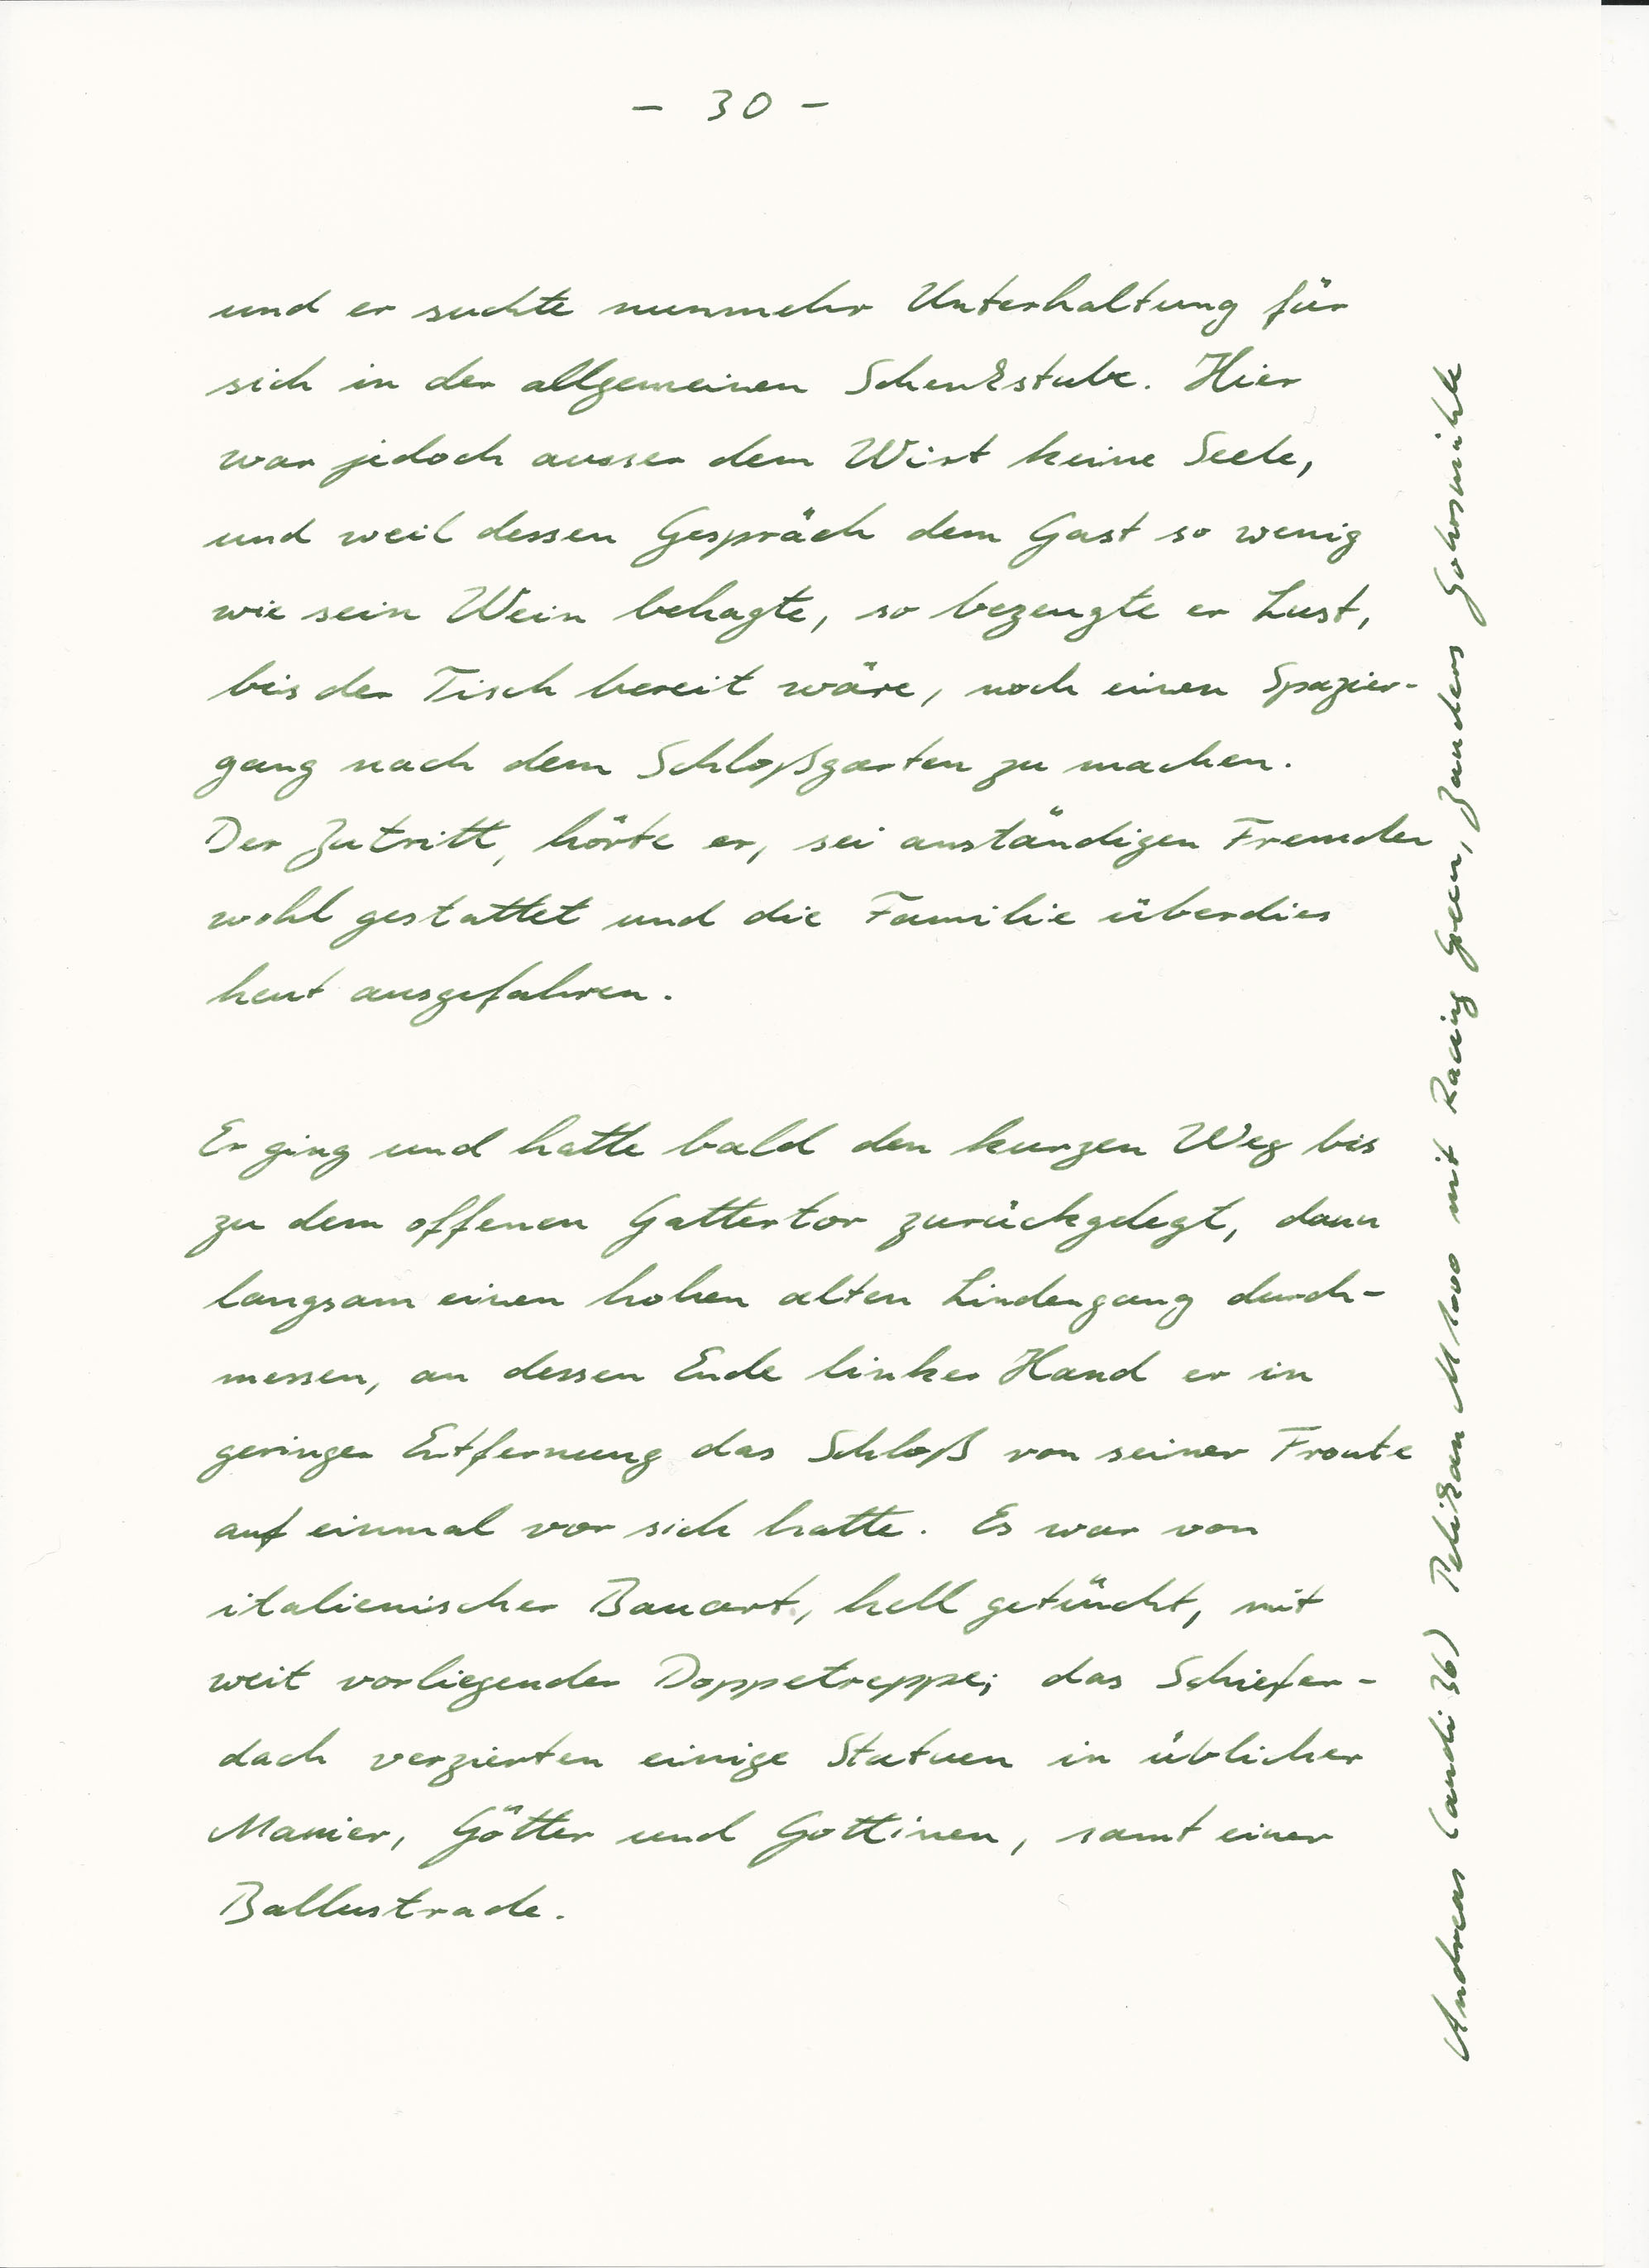 - 30 -
und er suchte nunmehr Unterhaltung für
sich in der allgemeinen Schenkstube. Hier
war jedoch ausser dem Wirt keine Seele,
und weil dessen Gespräch dem Gast so wenig
wie sein Wein behagte, so bezeugte er Lust,
bis der Tisch bereit wäre, noch einen Spazier-
gang nach dem Schloßgarten zu machen.
Der Zutritt, hörte er, sei anständigen Fremden
wohl gestattet und die Familie überdies
heut ausgefahren.
Er ging und hatte bald den kurzen Weg bis
zu dem offenen Gattertor zurückgelegt, dann
langsam einen hohen alten Lindengang durch-
messen, an dessen Ende linker Hand er in
geringer Entfernung das Schloß von seiner Fronte
auf einmal vor sich hatte. Es war von
italienischer Bauart, hell getüncht, mit
weit vorliegender Doppetreppe; das Schiefer-
dach verzierten einige Statuen in üblicher
Manier, Götter und Göttinen, samt einer
Ballustrade.
Andreas (andi36) Pelikan M1000 mit Racing Green, Zanders Gohrsmühle